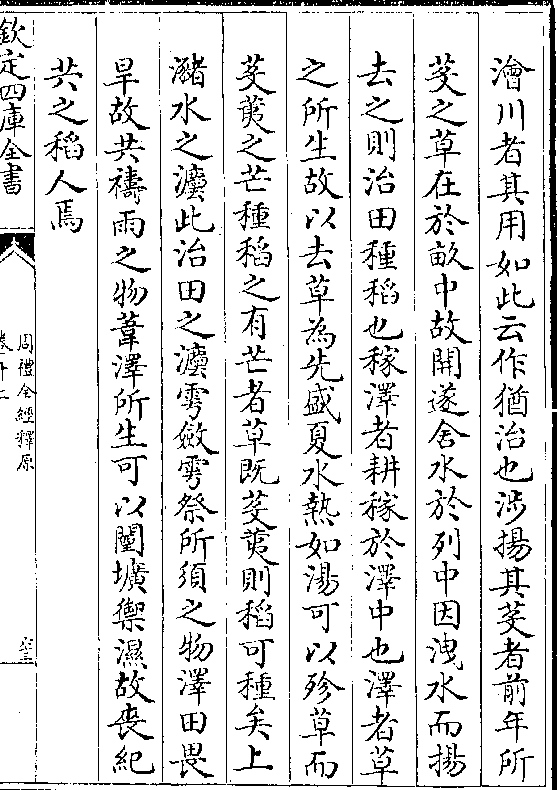 澮川者其用如此云作猶治也涉揚其芟者前年所
芟之草在於畝中故開遂舍水於列中因洩水而揚
去之則治田種稻也稼澤者耕稼於澤中也澤者草
之所生故以去草為先盛夏水熱如湯可以殄草而
芟荑之芒種稻之有芒者草既芟荑則稻可種矣上
瀦水之瀆此治田之瀆雩斂雩祭所須之物澤田畏
旱故共禱雨之物葦澤所生可以闉壙禦濕故喪紀
共之稻人焉
欽定四庫全書
周禮全經釋原
卷十二